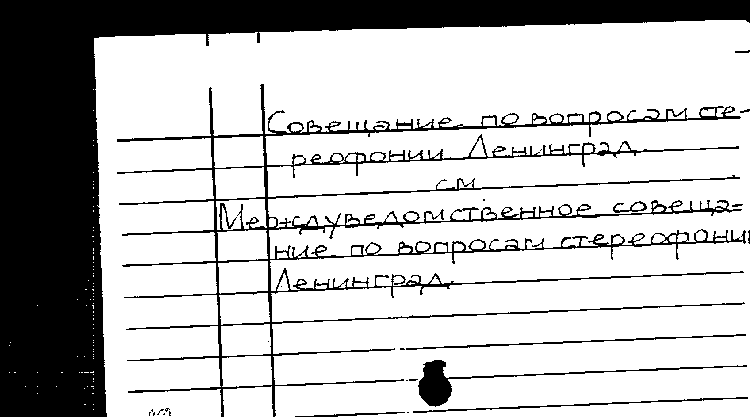 Совещание по вопросам сте-
реофонии Ленинград.
см
Междуведомственное совеща=
ние по вопросам стереофонии
Ленинград.